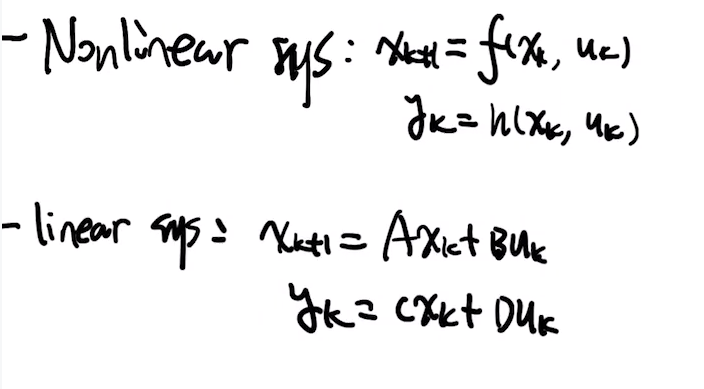 - Nonlinear sys: xₖ₊₁ = f(xₖ, uₖ)
yₖ = h(xₖ, uₖ)
- linear sys: xₖ₊₁ = Axₖ + Buₖ
yₖ = Cxₖ + Duₖ